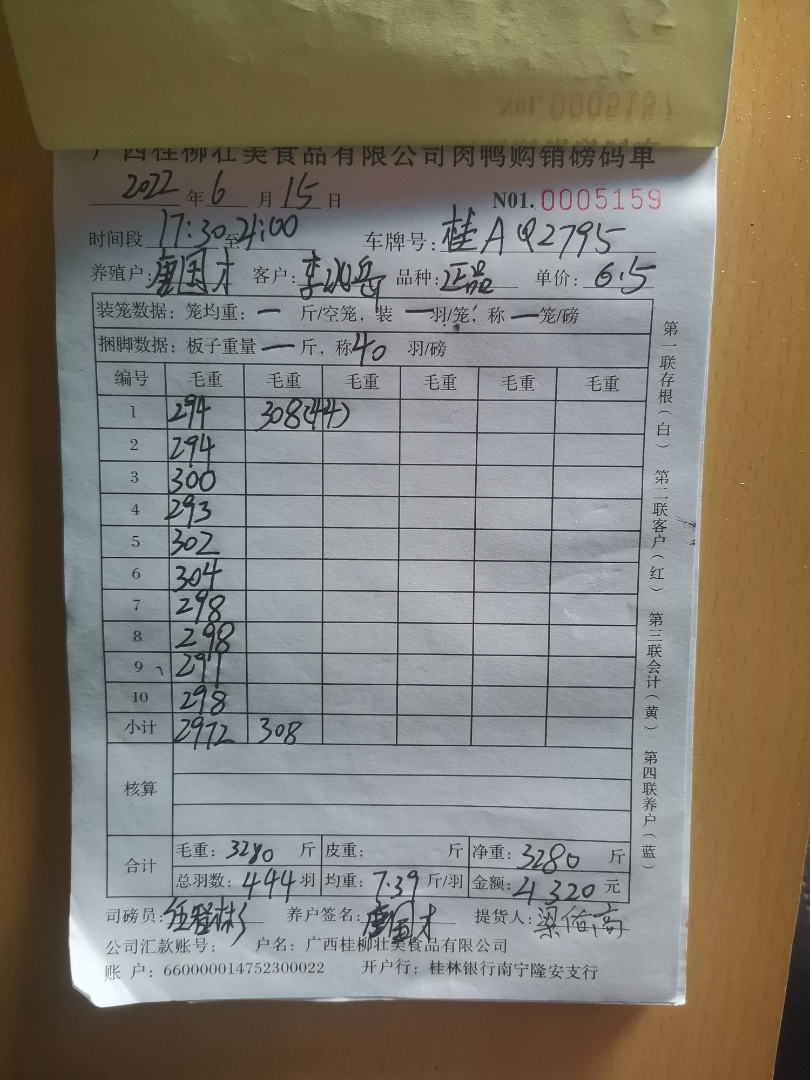 0005157
广西桂柳壮美食品有限公司肉鸭购销磅码单
2022年6月15日 N01.0005159
时间段17:30至21:00 车牌号:桂AQ2795
养殖户:唐国才 客户: 品种:正品 单价:6.5
装笼数据:笼均重:一斤/空笼,装一羽/笼,称一笼/磅
捆脚数据:板子重量一斤,称40羽/磅
编号 毛重 毛重 毛重 毛重 毛重 毛重
1 294 308(44)
2 294
3 300
4 293
5 302
6 304
7 298
8 298
9 291
10 298
小计 2972 308
核算
合计 毛重:3280斤 皮重: 斤 净重:3280斤
总羽数:444羽 均重:7.39斤/羽 金额:21320元
司磅员: 养户签名:唐国才 提货人:梁佑高
公司汇款账号: 户名:广西桂柳壮美食品有限公司
账 户:660000014752300022 开户行:桂林银行南宁隆安支行
第一联存根(白) 第二联客户(红) 第三联会计(黄) 第四联养户(蓝)